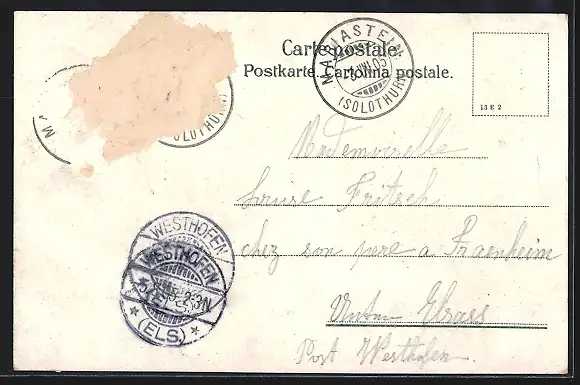 Carte postale.
Postkarte. Cartolina postale.
MARIASTEIN
(SOLOTHURN)
13 E 2
M
SOLOTHURN
Mademoiselle
Louise Fritsch
chez son pere a Fraenheim
WESTHOFEN
WESTHOFEN
(ELS.)
Unter Elsass
Post Westhofen